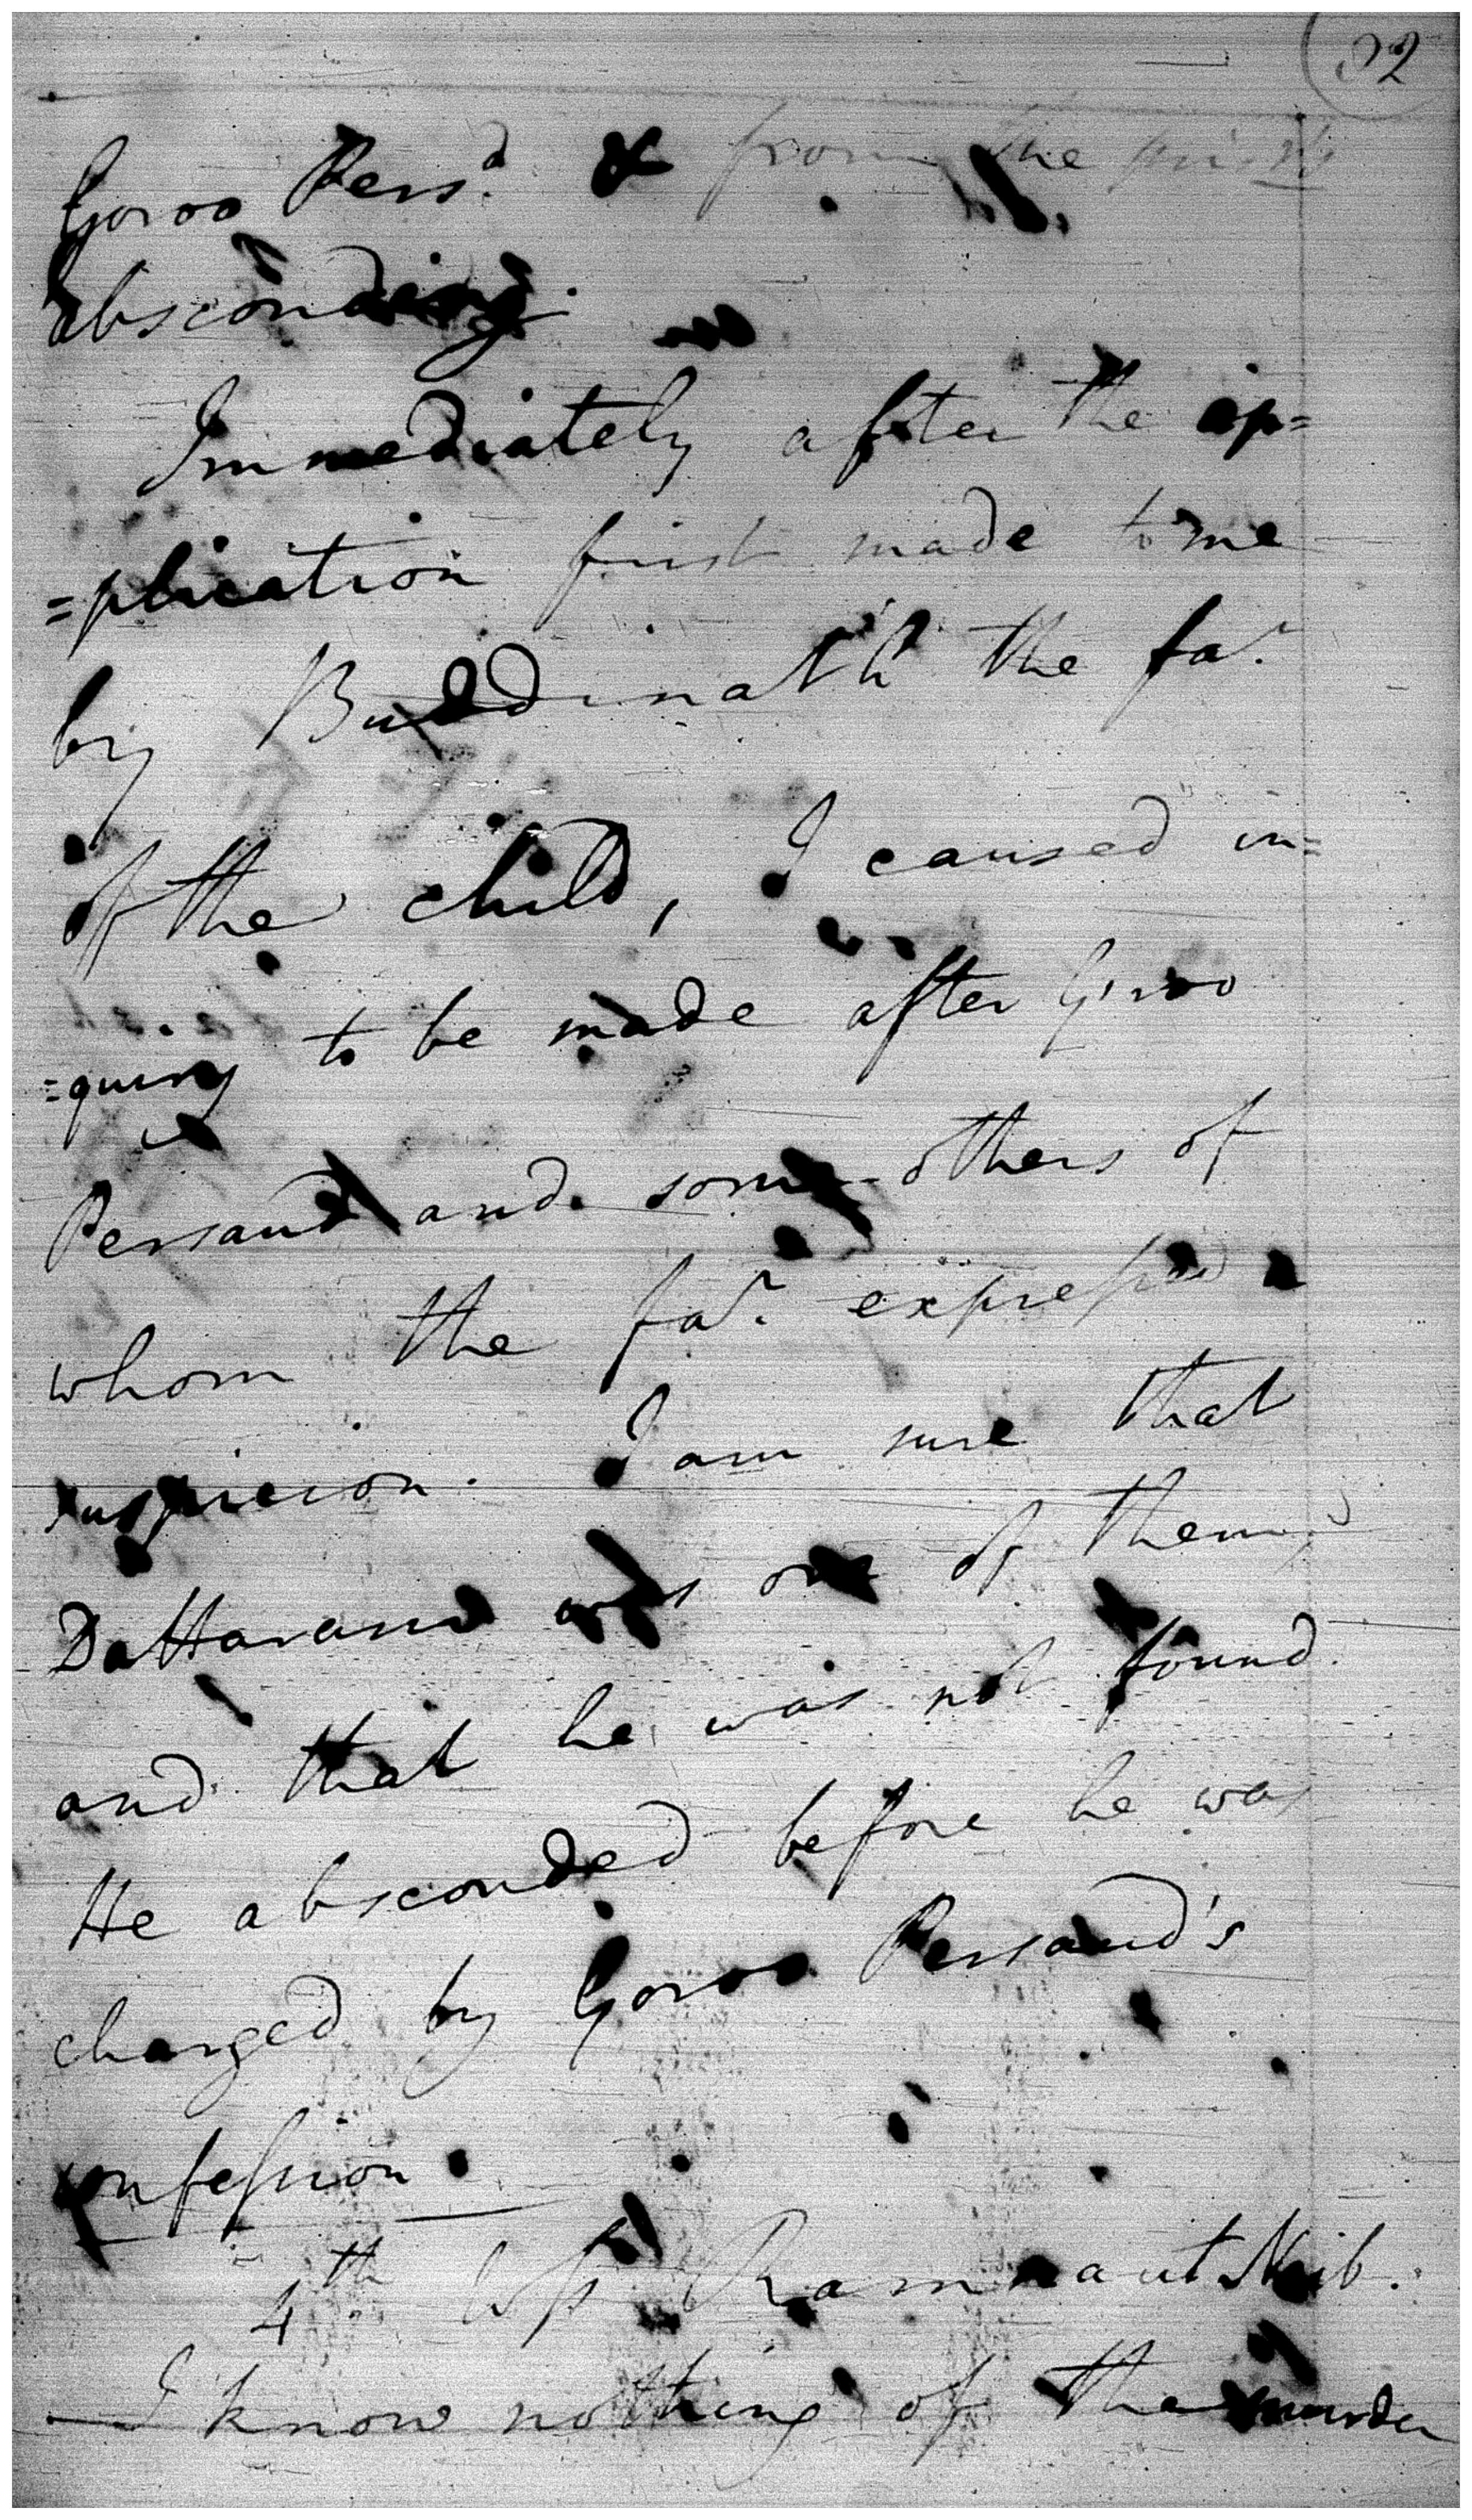 32
Goroo Pers.d & from the
absconding.
Immediately after the ap=
=plication first made to me
by Buddinath the fa.r
of the child, I caused in=
=quiry to be made after Goroo
Persaud and some others of
whom the fa.r expressed
suspicion. I am sure that
Dattaram was one of them,
and that he was not found.
He absconded before he was
charged by Goroo Persaud's
confession.
4th Ws Ramnaut Naib.
I know nothing of the murder